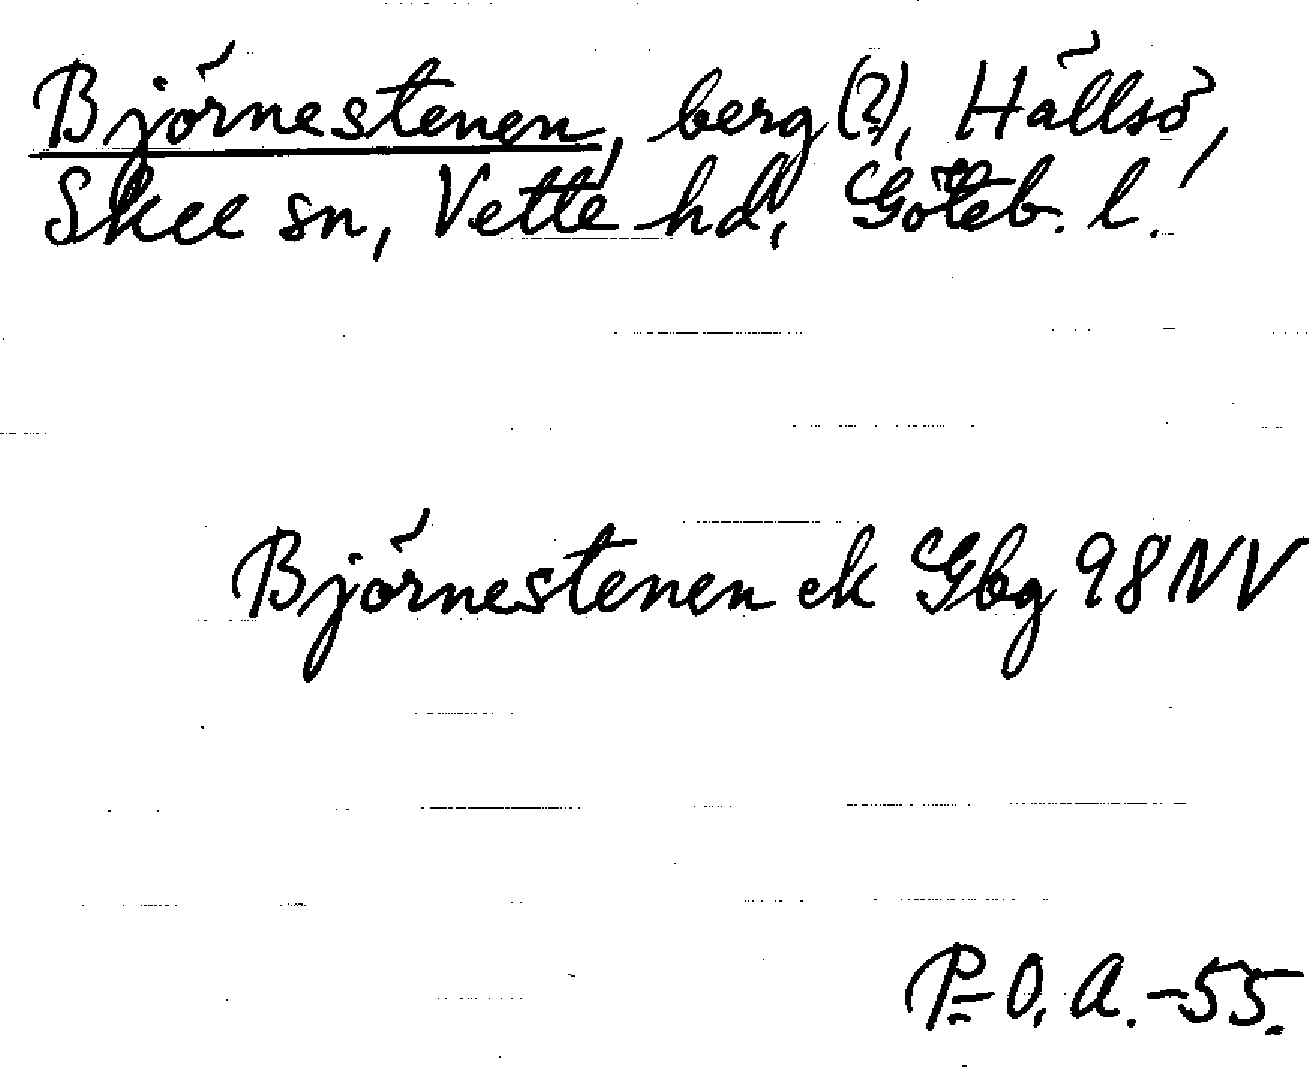 Björnestenen, berg (?), Hällsö,
Skee sn, Vette hd, Göteb. l.
Björnestenen ek Gbg 98 NV
P-O. A. -55.